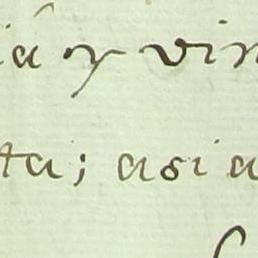 iá y vin
ta; asi a